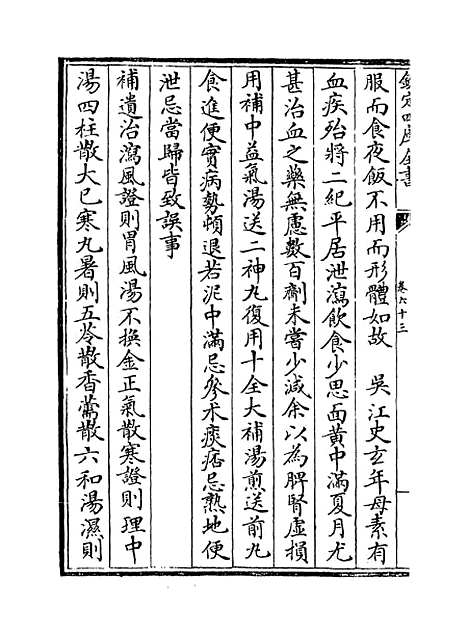 欽定四庫全書
卷六十三
服而食夜飯不用而形體如故　吳江史玄年母素有
血疾殆將二紀平居泄瀉飲食少思面黄中滿夏月尤
甚治血之藥無慮數百劑未嘗少減余以為脾腎虛損
用補中益氣湯送二神丸復用十全大補湯煎送前丸
食進便實病勢頓退若泥中滿忌參术痰痞忌熟地便
泄忌當歸皆致誤事
補遺治瀉風證則胃風湯不換金正氣散寒證則理中
湯四柱散大已寒丸暑則五苓散香薷散六和湯濕則